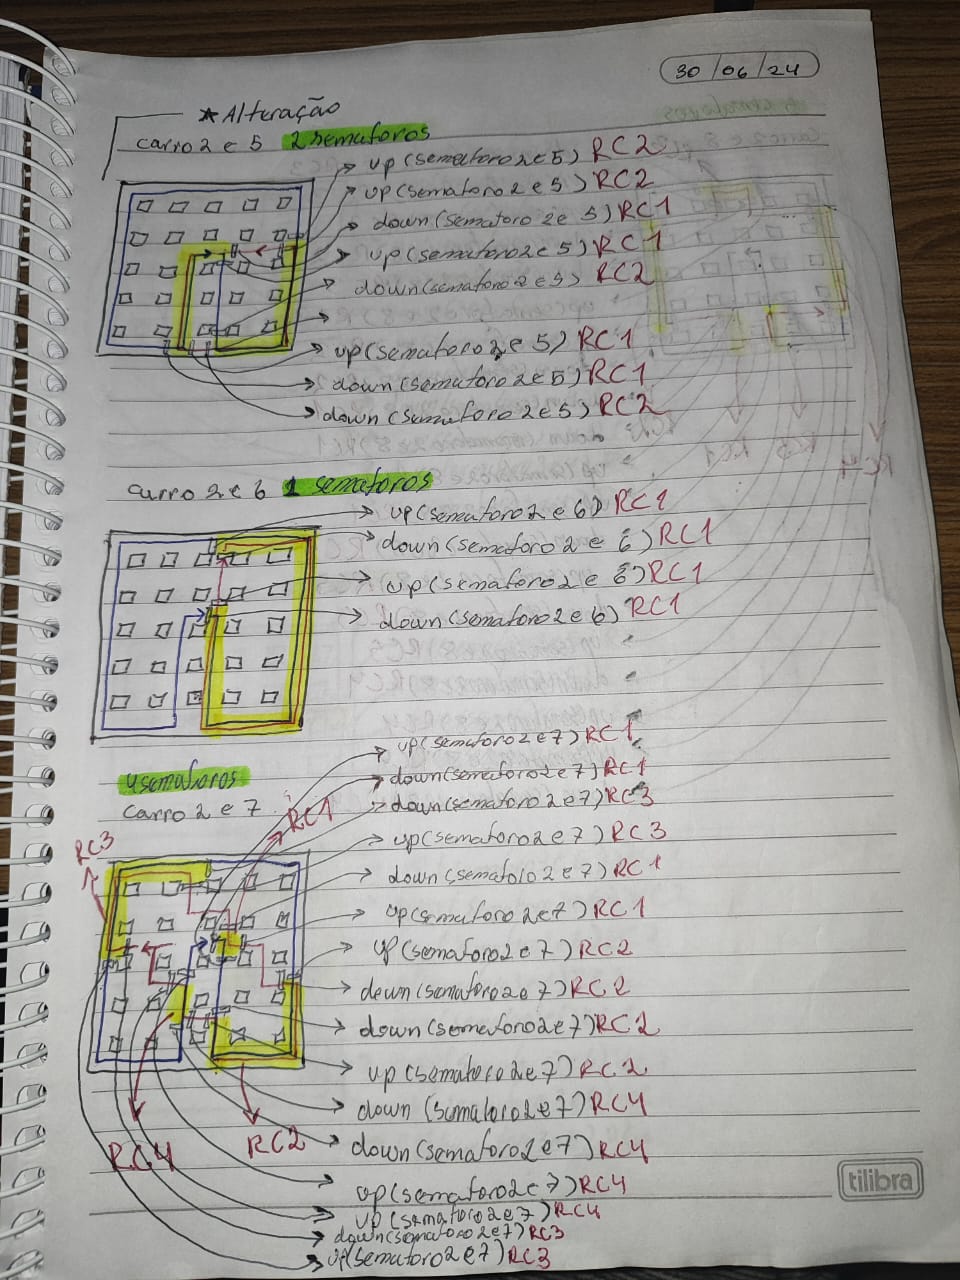 30/06/24
* Alteração
carro 2 e 5 2 semaforos
up(semaforo 2 e 5) RC2
up(semaforo 2 e 5) RC2
down(semaforo 2 e 5) RC1
up(semaforo 2 e 5) RC1
down(semaforo 2 e 5) RC2
up(semaforo 2 e 5) RC1
down(semaforo 2 e 5) RC1
down(semaforo 2 e 5) RC2
carro 2 e 6 1 semaforos
up(semaforo 2 e 6) RC1
down(semaforo 2 e 6) RC1
up(semaforo 2 e 6) RC1
down(semaforo 2 e 6) RC1
up(semaforo 2 e 7) RC1
4 semaforos
down(semaforo 2 e 7) RC1
carro 2 e 7
down(semaforo 2 e 7) RC3
RC1
up(semaforo 2 e 7) RC3
RC3
down(semaforo 2 e 7) RC1
up(semaforo 2 e 7) RC1
up(semaforo 2 e 7) RC2
down(semaforo 2 e 7) RC2
down(semaforo 2 e 7) RC2
up(semaforo 2 e 7) RC2
down(semaforo 2 e 7) RC4
RC4
RC2
down(semaforo 2 e 7) RC4
up(semaforo 2 e 7) RC4
up(semaforo 2 e 7) RC4
down(semaforo 2 e 7) RC3
up(semaforo 2 e 7) RC3
tilibra